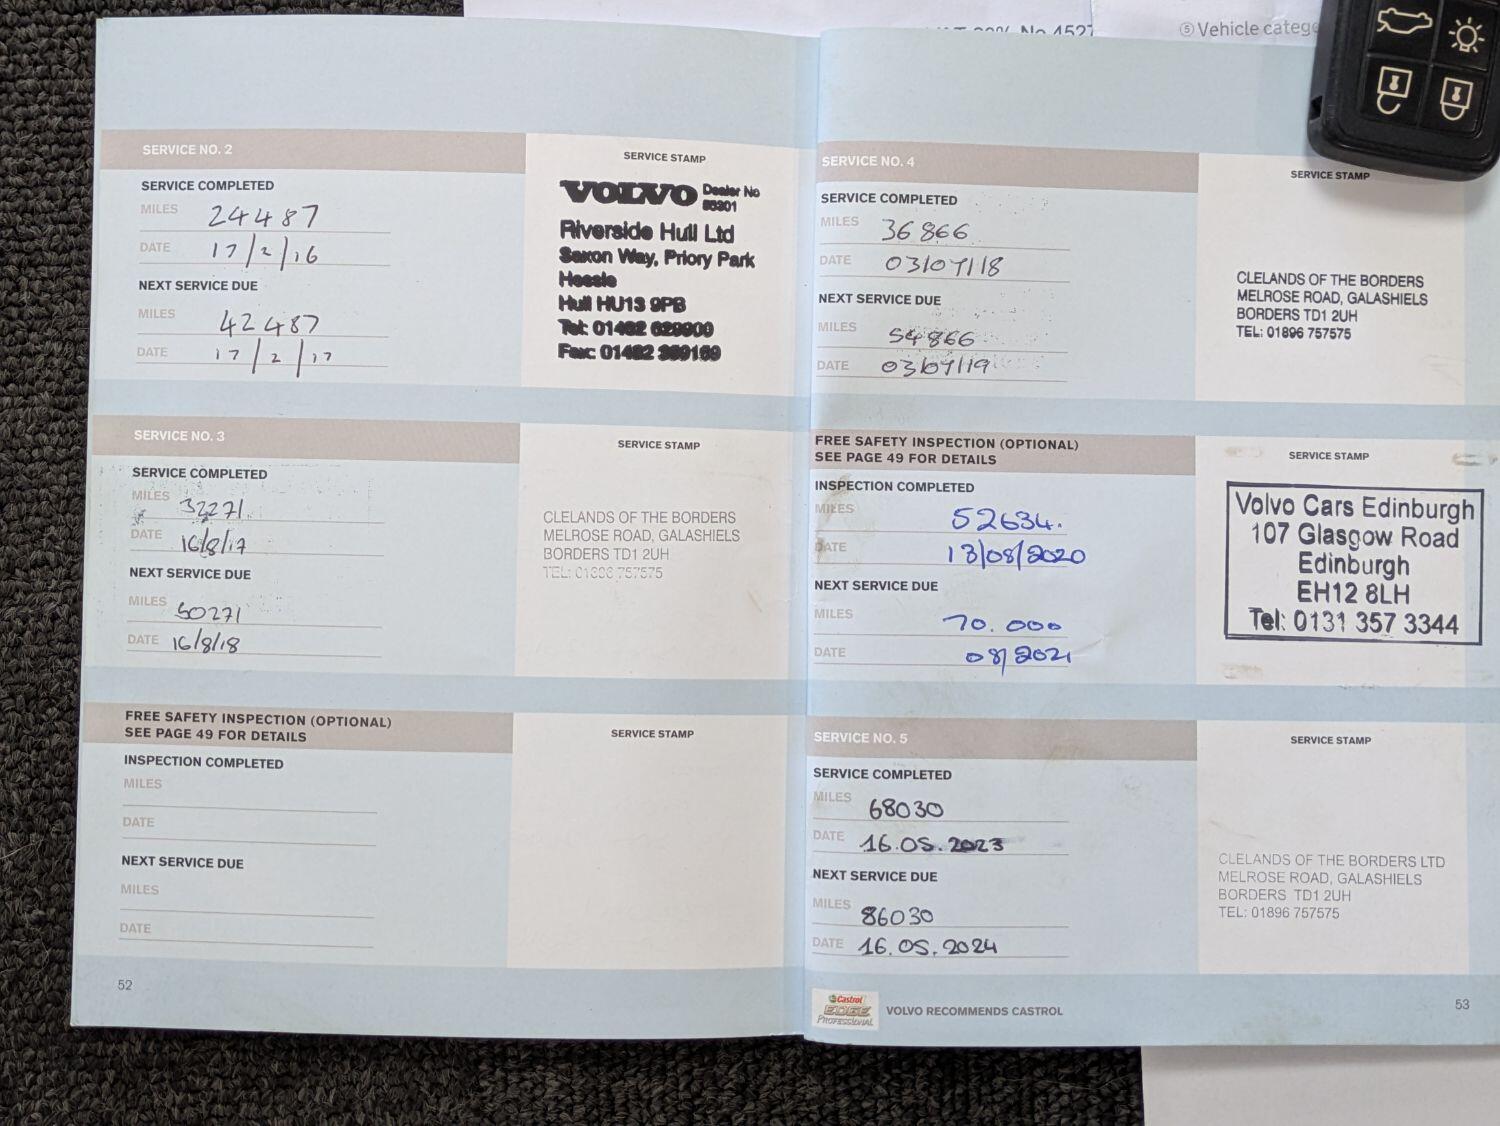 No 4527
⑤ Vehicle catego
SERVICE NO. 2
SERVICE STAMP
SERVICE COMPLETED
MILES 24487
DATE 17/2/16
NEXT SERVICE DUE
MILES 42487
DATE 17/2/17
VOLVO Dealer No
Riverside Hull Ltd
Saxon Way, Priory Park
Hessle
Hull HU13 9PB
Tel: 01482
Fax: 01482
SERVICE NO. 3
SERVICE STAMP
SERVICE COMPLETED
MILES 32271
DATE 16/8/17
NEXT SERVICE DUE
MILES 50271
DATE 16/8/18
CLELANDS OF THE BORDERS
MELROSE ROAD, GALASHIELS
BORDERS TD1 2UH
TEL: 01896 757575
FREE SAFETY INSPECTION (OPTIONAL)
SEE PAGE 49 FOR DETAILS
SERVICE STAMP
INSPECTION COMPLETED
MILES
DATE
NEXT SERVICE DUE
MILES
DATE
52
SERVICE NO. 4
SERVICE STAMP
SERVICE COMPLETED
MILES 36866
DATE 03/07/18
NEXT SERVICE DUE
MILES 54866
DATE 03/07/19
CLELANDS OF THE BORDERS
MELROSE ROAD, GALASHIELS
BORDERS TD1 2UH
TEL: 01896 757575
FREE SAFETY INSPECTION (OPTIONAL)
SEE PAGE 49 FOR DETAILS
SERVICE STAMP
INSPECTION COMPLETED
MILES 52634.
DATE 13/08/2020
NEXT SERVICE DUE
MILES 70.000
DATE 08/2021
Volvo Cars Edinburgh
107 Glasgow Road
Edinburgh
EH12 8LH
Tel: 0131 357 3344
SERVICE NO. 5
SERVICE STAMP
SERVICE COMPLETED
MILES 68030
DATE 16.05.2023
NEXT SERVICE DUE
MILES 86030
DATE 16.05.2024
CLELANDS OF THE BORDERS LTD
MELROSE ROAD, GALASHIELS
BORDERS TD1 2UH
TEL: 01896 757575
Castrol
EDGE
PROFESSIONAL
VOLVO RECOMMENDS CASTROL
53